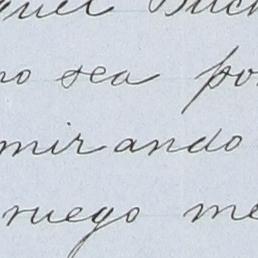 no sea por
mirando
ruego me